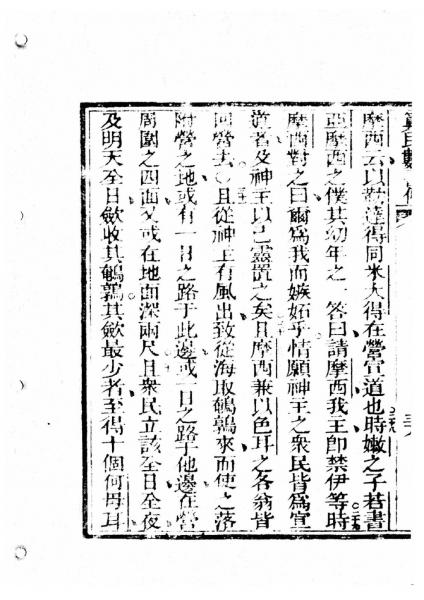 摩西云以勒達得同米大得在營宣道也時嫩之子若書
亞摩西之僕其幼年之一答曰請摩西我主卽禁伊等時
摩西對之曰爾爲我而嫉妬乎情願神主之衆民皆爲宣
道者及神主以己靈置之矣且摩西兼以色耳之各翁皆
回營去○且從神主有風出致從海取鵪鶉來而使之落
附營之地或有一日之路于此邊或一日之路于他邊在營
周圍之四面又或在地面深兩尺且衆民立該全日全夜
及明天全日歛收其鵪鶉其歛最少者至得十個何母耳